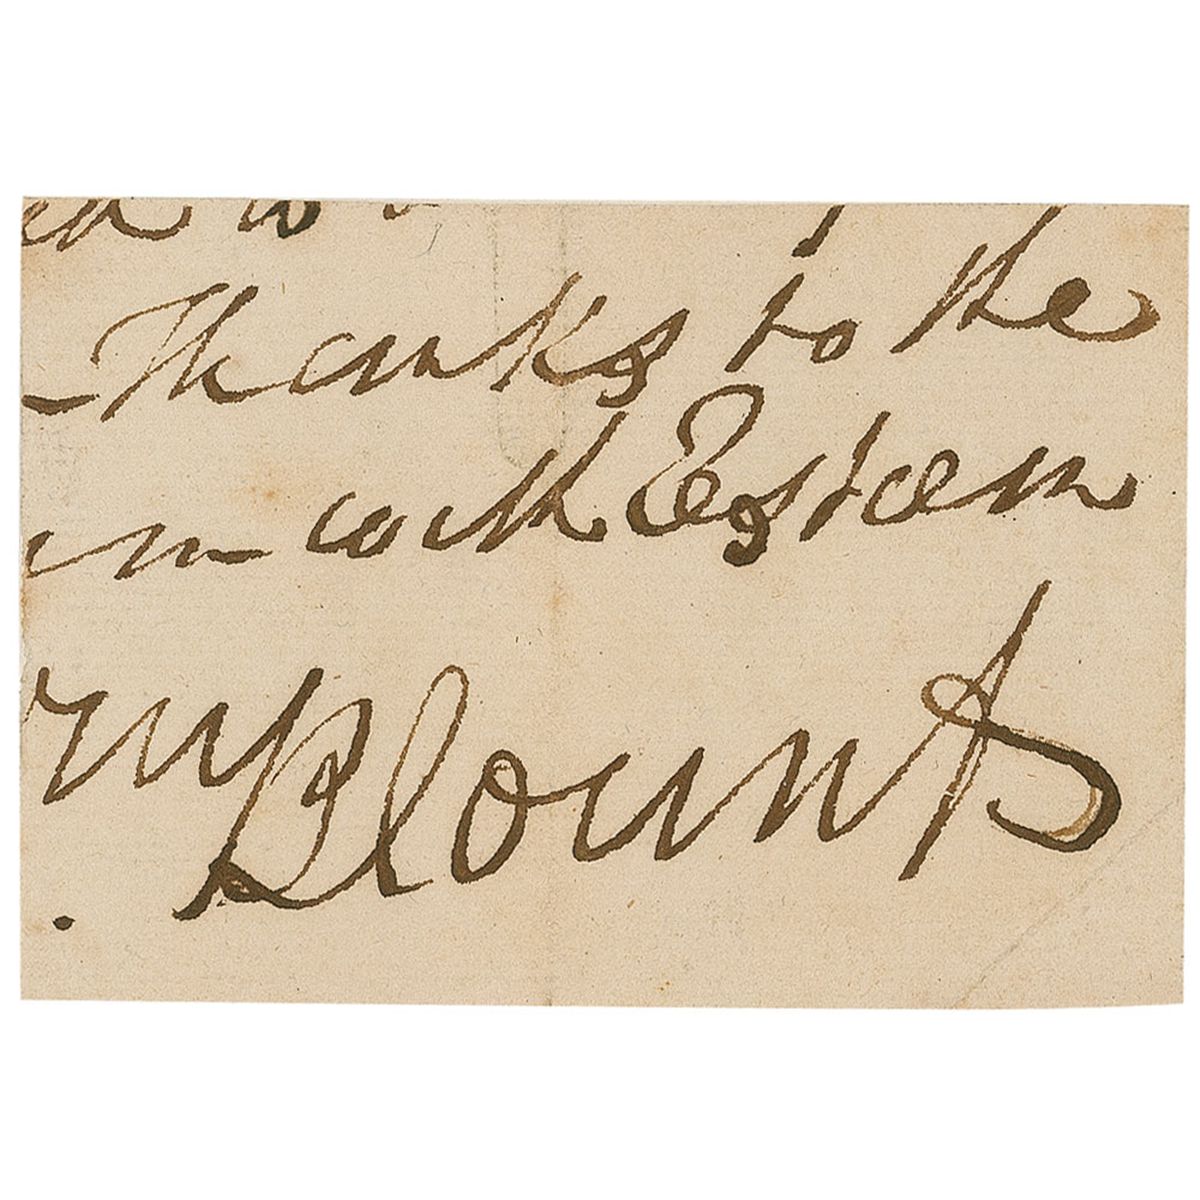 - Thanks to the
m - with Esteem
Wm Blount